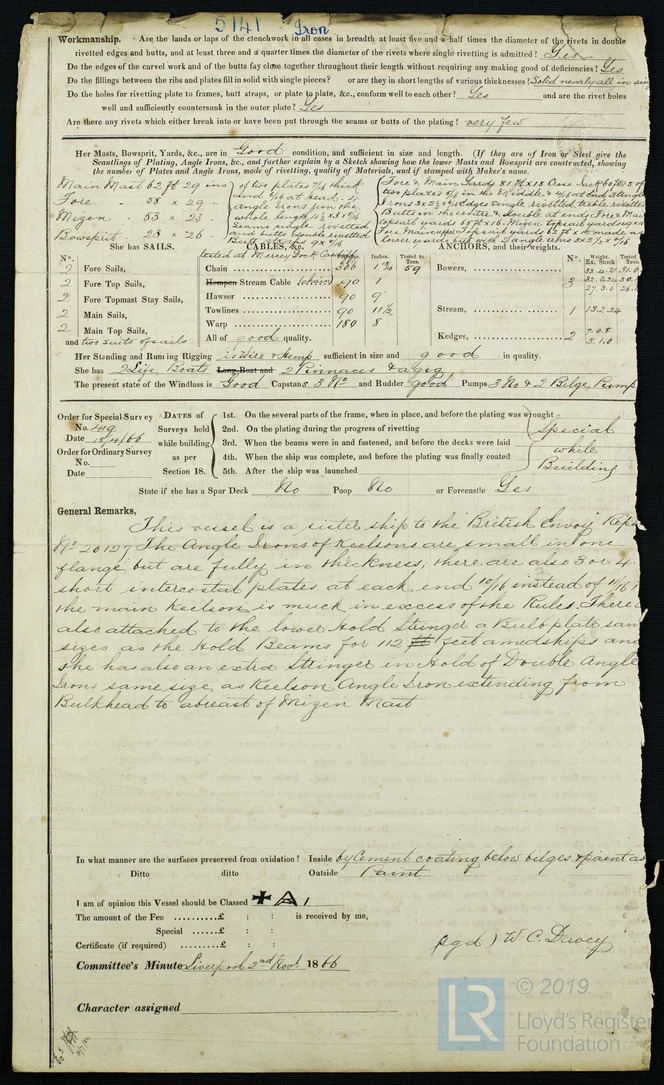 5141 Iron
Workmanship. - Are the lands or laps of the clenchwork in all cases in breadth at least five and a half times the diameter of the rivets in double
rivetted edges and butts, and at least three and a quarter times the diameter of the rivets where single rivetting is admitted? Yes
Do the edges of the carvel work and of the butts fay close together throughout their length without requiring any making good of deficiencies? Yes
Do the fillings between the ribs and plates fill in solid with single pieces? or are they in short lengths of various thicknesses? Solid nearly all in
Do the holes for rivetting plate to frames, butt straps, or plate to plate, &c., conform well to each other? Yes and are the rivet holes
well and sufficiently countersunk in the outer plate? Yes
Are there any rivets which either break into or have been put through the seams or butts of the plating? very few
Her Masts, Bowsprit, Yards, &c., are in Good condition, and sufficient in size and length. (If they are of Iron or Steel give the
Scantlings of Plating, Angle Irons, &c., and further explain by a Sketch showing how the lower Masts and Bowsprit are constructed, showing
the number of Plates, mode of rivetting, quality of Materials, and if stamped with Maker's name.
Main Mast 62 ft 29 ins
Fore " - 58 x 29 "
Mizen - 53 x 23
Bowsprit - 23 x 26
of two plates 7/16 thick
and 6/16 at head. is
angle irons run the
whole length
Seams single rivetted
and butts double rivetted
Butt straps 9 x 9/16
Fore & Main Yards
two plates
Irons edges single rivetted treble rivetted
Butts in the centre & double at ends Fore & Main
topsail yards Mizen topsail yards
Fore Main upper Topsail yards made as
lower yards but with 3 angle irons
She has SAILS.
No.
2 Fore Sails,
2 Fore Top Sails,
2 Fore Topmast Stay Sails,
2 Main Sails,
2 Main Top Sails,
and two suits of sails
CABLES, &c.
tested at Mersey Dock
Chain 300 1 59
Inches. Tested to Tons.
Hempen Stream Cable Chain 90 1
Hawser 90 9
Towlines 90 11½
Warp 180 8
All of good quality.
ANCHORS, and their weights.
No. Weight. Ex. Stock Tested to Tons
Bowers, 3
27.3.0
Stream, 1 13.2.24
Kedges, 2 7.0.8
3.1.0
Her Standing and Running Rigging is Wire & Hemp sufficient in size and good in quality.
She has 2 Life Boats Long Boat and 2 Pinnaces & a gig
The present state of the Windlass is Good Capstan 3 No and Rudder Good Pumps 3 No & 2 Bilge Pump
Order for Special Survey
No. 419
Date 18/4/66
Order for Ordinary Survey
No.
Date
DATES of
Surveys held
while building
as per
Section 18.
1st. On the several parts of the frame, when in place, and before the plating was wrought
2nd. On the plating during the progress of rivetting
3rd. When the beams were in and fastened, and before the decks were laid
4th. When the ship was complete, and before the plating was finally coated
5th. After the ship was launched
Special
while
Building
State if she has a Spar Deck No Poop No or Forecastle Yes
General Remarks,
This vessel is a sister ship to the British Envoy
No 20127 The Angle Irons of Keelsons are small in one
flange, but are fully in thickness, there are also 3 or 4
short intercostal plates at each end 10/16 instead of 11/16
the main Keelson is much in excess of the Rules. There
also attached to the lower Hold Stringer a Bulb plate
sizes as the Hold Beams for 112 feet amidships and
she has also an extra Stringer in Hold of Double Angle
Irons same size as Keelson Angle Iron extending from
Bulkhead to abreast of Mizen Mast
In what manner are the surfaces preserved from oxidation? Inside by Cement coating below bilges & paint
Ditto ditto Outside Paint
I am of opinion this Vessel should be Classed ✠ A 1
The amount of the Fee .......... £ : : is received by me,
Special ...... £ : :
Certificate (if required) ...... £ : :
(sgd) W. C. Davey
Committee's Minute Liverpool 2nd Novr 1866
Character assigned
LR © 2019
Lloyd's Register
Foundation